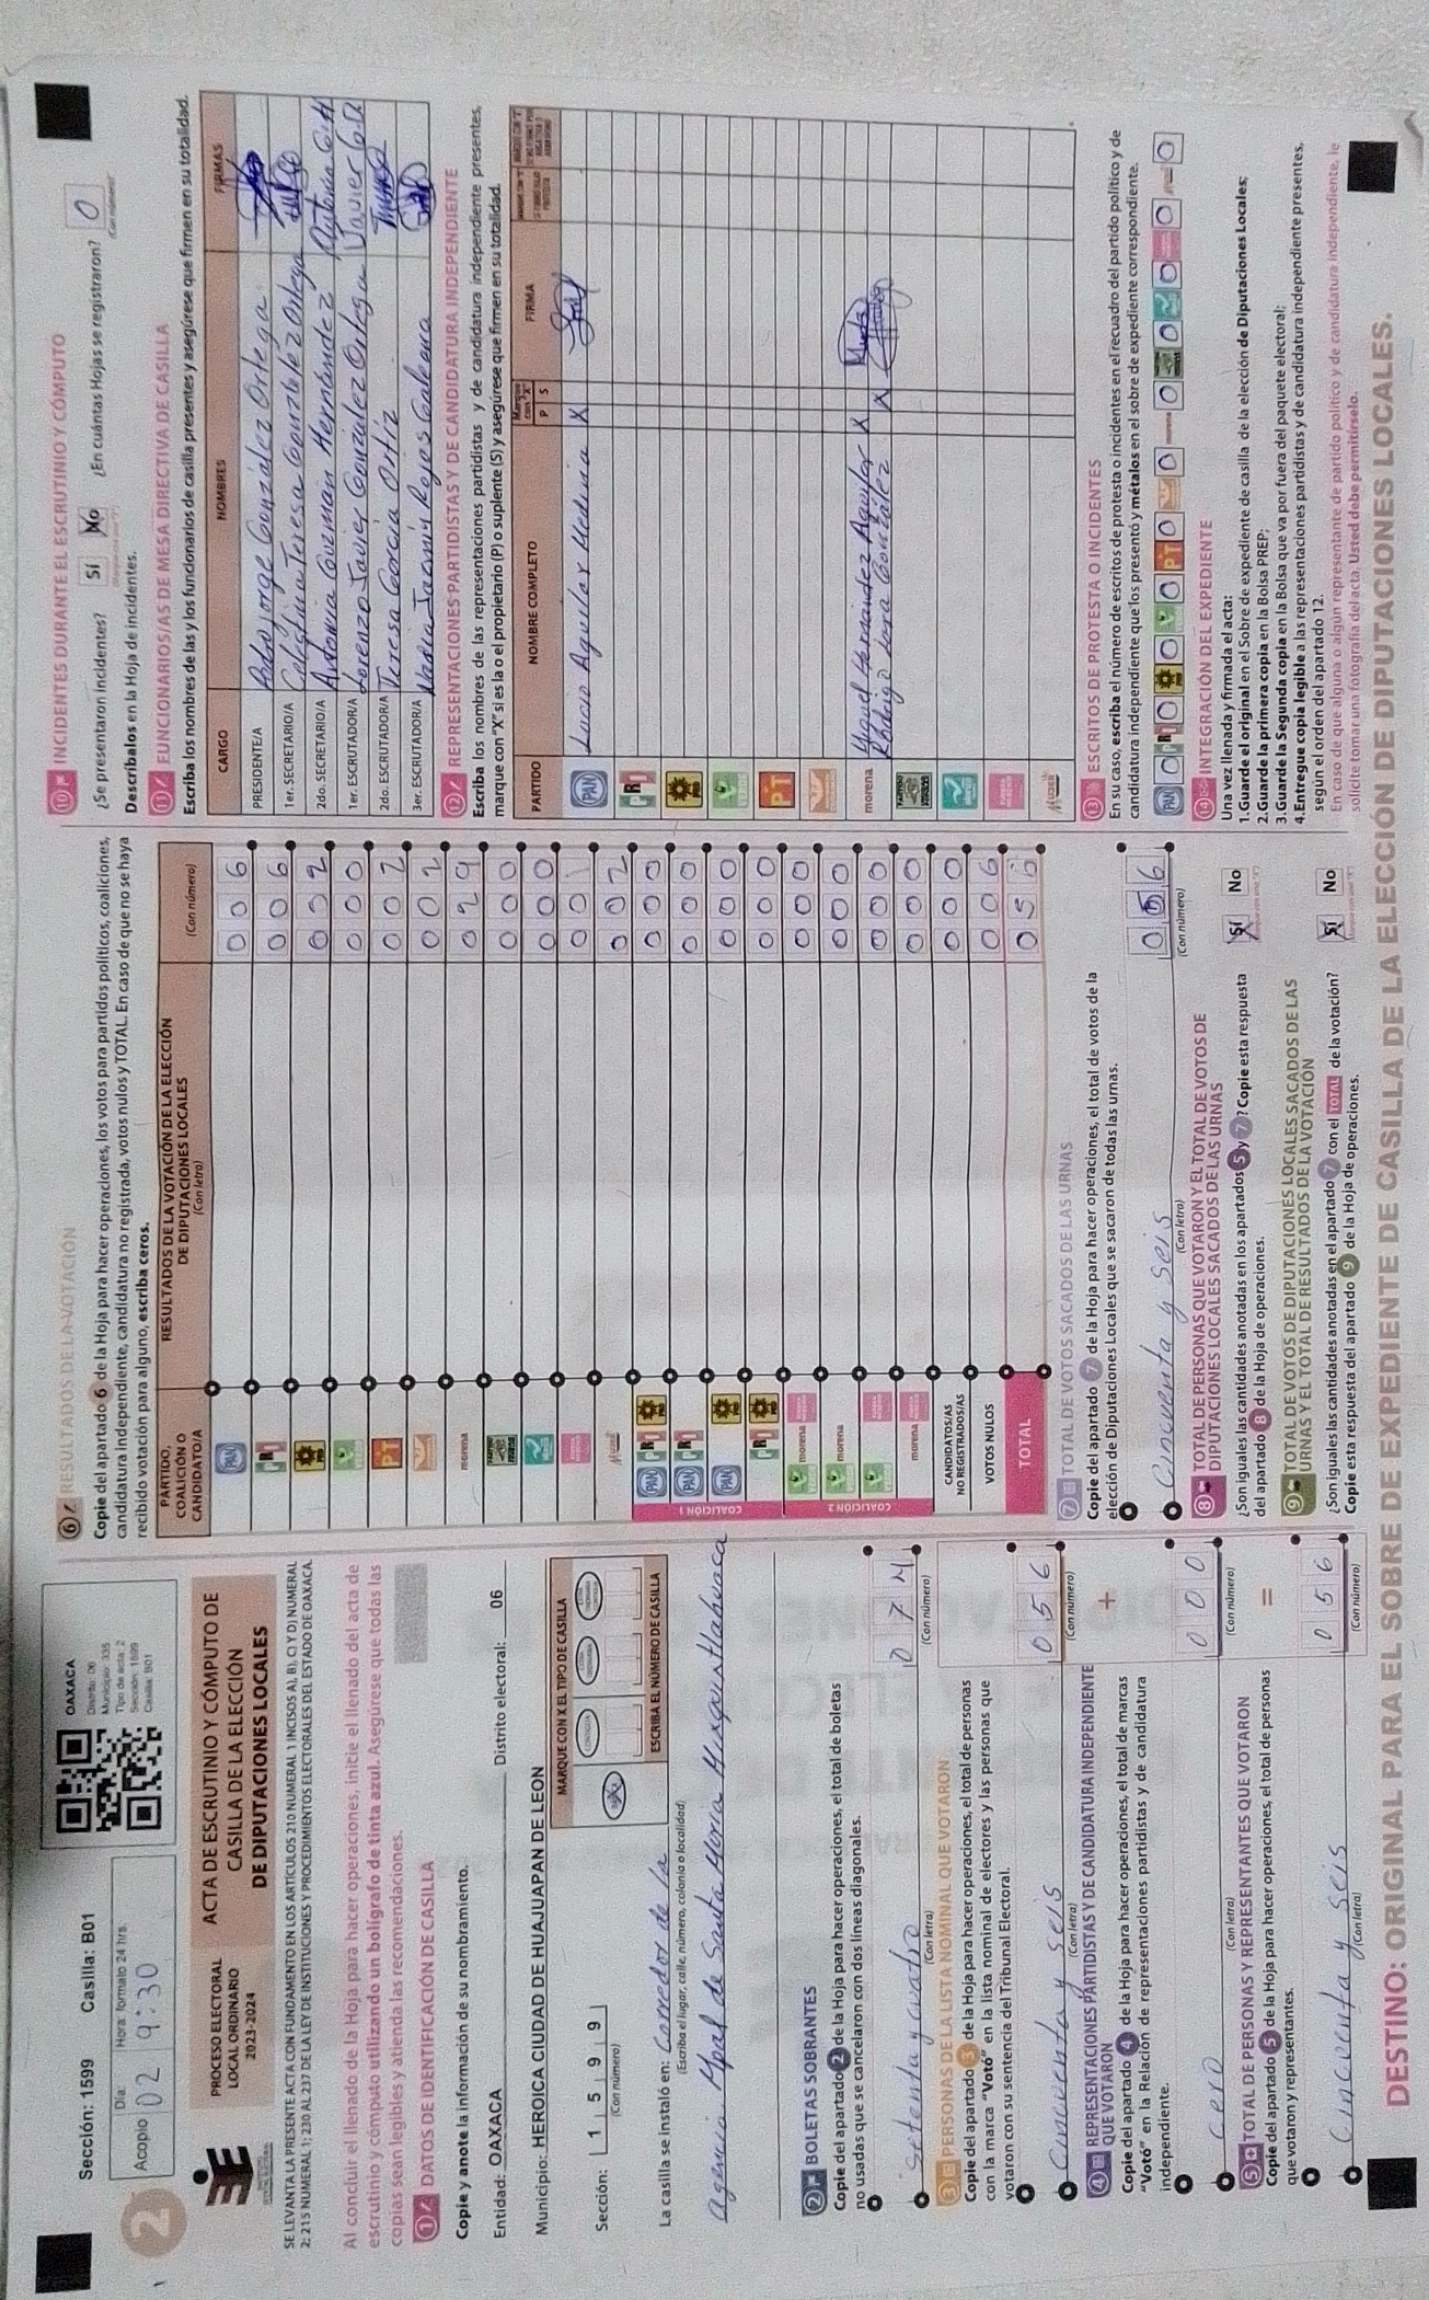 Sección: 1599 Casilla: B01
Día: Hora: formato 24 hrs.
Acopio 02 9:30
OAXACA
Distrito: 06
Municipio: 335
Tipo de acta: 2
Sección: 1599
Casilla: B01
2
PROCESO ELECTORAL
LOCAL ORDINARIO
2023-2024
ACTA DE ESCRUTINIO Y CÓMPUTO DE
CASILLA DE LA ELECCIÓN
DE DIPUTACIONES LOCALES
SE LEVANTA LA PRESENTE ACTA CON FUNDAMENTO EN LOS ARTÍCULOS 210 NUMERAL 1 INCISOS A), B), C) Y D) NUMERAL
2; 215 NUMERAL 1; 230 AL 237 DE LA LEY DE INSTITUCIONES Y PROCEDIMIENTOS ELECTORALES DEL ESTADO DE OAXACA.
Al concluir el llenado de la Hoja para hacer operaciones, inicie el llenado del acta de
escrutinio y cómputo utilizando un bolígrafo de tinta azul. Asegúrese que todas las
copias sean legibles y atienda las recomendaciones.
1 DATOS DE IDENTIFICACIÓN DE CASILLA
Copie y anote la información de su nombramiento.
Entidad: OAXACA Distrito electoral: 06
Municipio: HEROICA CIUDAD DE HUAJUAPAN DE LEON
Sección: 1 5 9 9
(Con número)
MARQUE CON X EL TIPO DE CASILLA
ESCRIBA EL NÚMERO DE CASILLA
La casilla se instaló en: Corredor de la
(Escriba el lugar, calle, número, colonia o localidad)
Agencia Mpal de Santa María Huxquixtlahuaca
2 BOLETAS SOBRANTES
Copie del apartado 2 de la Hoja para hacer operaciones, el total de boletas
no usadas que se cancelaron con dos líneas diagonales.
setenta y cuatro 0 7 4
(Con letra) (Con número)
3 PERSONAS DE LA LISTA NOMINAL QUE VOTARON
Copie del apartado 3 de la Hoja para hacer operaciones, el total de personas
con la marca "Votó" en la lista nominal de electores y las personas que
votaron con su sentencia del Tribunal Electoral.
Cincuenta y seis 0 5 6
(Con letra) (Con número)
+
4 REPRESENTACIONES PARTIDISTAS Y DE CANDIDATURA INDEPENDIENTE
QUE VOTARON
Copie del apartado 4 de la Hoja para hacer operaciones, el total de marcas
"Votó" en la Relación de representaciones partidistas y de candidatura
independiente.
cero 0 0 0
(Con letra) (Con número)
=
5 TOTAL DE PERSONAS Y REPRESENTANTES QUE VOTARON
Copie del apartado 5 de la Hoja para hacer operaciones, el total de personas
que votaron y representantes.
Cincuenta y seis 0 5 6
(Con letra) (Con número)
6 RESULTADOS DE LA VOTACIÓN
Copie del apartado 6 de la Hoja para hacer operaciones, los votos para partidos políticos, coaliciones,
candidatura independiente, candidatura no registrada, votos nulos y TOTAL. En caso de que no se haya
recibido votación para alguno, escriba ceros.
PARTIDO, COALICIÓN O CANDIDATO/A
RESULTADOS DE LA VOTACIÓN DE LA ELECCIÓN
DE DIPUTACIONES LOCALES
(Con letra) (Con número)
PAN 0 0 6
PRI 0 0 6
PRD 0 0 2
VERDE 0 0 0
PT 0 0 2
0 0 2
morena 0 2 9
0 0 0
0 0 0
0 0 1
MUJER 0 0 2
COALICIÓN 1
PAN PRI PRD 0 0 0
PAN PRI 0 0 0
PAN PRD 0 0 0
PRI PRD 0 0 0
COALICIÓN 2
VERDE morena 0 0 0
VERDE morena 0 0 0
VERDE 0 0 0
morena 0 0 0
CANDIDATOS/AS
NO REGISTRADOS/AS 0 0 0
VOTOS NULOS 0 0 6
TOTAL 0 5 6
7 TOTAL DE VOTOS SACADOS DE LAS URNAS
Copie del apartado 7 de la Hoja para hacer operaciones, el total de votos de la
elección de Diputaciones Locales que se sacaron de todas las urnas.
Cincuenta y seis 0 5 6
(Con letra) (Con número)
8 TOTAL DE PERSONAS QUE VOTARON Y EL TOTAL DE VOTOS DE
DIPUTACIONES LOCALES SACADOS DE LAS URNAS
¿Son iguales las cantidades anotadas en los apartados 5 y 7? Copie esta respuesta
del apartado 8 de la Hoja de operaciones.
Sí No
9 TOTAL DE VOTOS DE DIPUTACIONES LOCALES SACADOS DE LAS
URNAS Y EL TOTAL DE RESULTADOS DE LA VOTACIÓN
¿Son iguales las cantidades anotadas en el apartado 7 con el TOTAL de la votación?
Copie esta respuesta del apartado 9 de la Hoja de operaciones.
Sí No
10 INCIDENTES DURANTE EL ESCRUTINIO Y CÓMPUTO
¿Se presentaron incidentes? Sí No ¿En cuántas Hojas se registraron? 0
(Con número)
Descríbalos en la Hoja de incidentes.
11 FUNCIONARIOS/AS DE MESA DIRECTIVA DE CASILLA
Escriba los nombres de las y los funcionarios de casilla presentes y asegúrese que firmen en su totalidad.
CARGO NOMBRES FIRMAS
PRESIDENTE/A Pablo Jorge González Ortega
1er. SECRETARIO/A Celestina Teresa González Ortega
2do. SECRETARIO/A Antonia Guzmán Hernández Antonia G. H
1er. ESCRUTADOR/A Lorenzo Javier González Ortega Javier G.O
2do. ESCRUTADOR/A Teresa García Ortíz
3er. ESCRUTADOR/A Nadia Jazmín Rojas Galeana
12 REPRESENTACIONES PARTIDISTAS Y DE CANDIDATURA INDEPENDIENTE
Escriba los nombres de las representaciones partidistas y de candidatura independiente presentes,
marque con "X" si es la o el propietario (P) o suplente (S) y asegúrese que firmen en su totalidad.
PARTIDO NOMBRE COMPLETO Marque con "X" P S FIRMA
PAN Lucio Aguilar Medina X
PRI
PRD
VERDE
PT
morena Miguel Hernández Aguilar X
Rodrigo Lara González X
MUJER
13 ESCRITOS DE PROTESTA O INCIDENTES
En su caso, escriba el número de escritos de protesta o incidentes en el recuadro del partido político y de
candidatura independiente que los presentó y métalos en el sobre de expediente correspondiente.
PAN 0 PRI 0 PRD 0 0 PT 0 0 0 0 0 0 0
14 INTEGRACIÓN DEL EXPEDIENTE
Una vez llenada y firmada el acta:
1.Guarde el original en el Sobre de expediente de casilla de la elección de Diputaciones Locales;
2.Guarde la primera copia en la Bolsa PREP;
3.Guarde la Segunda copia en la Bolsa que va por fuera del paquete electoral;
4.Entregue copia legible a las representaciones partidistas y de candidatura independiente presentes,
según el orden del apartado 12.
En caso de que alguna o algún representante de partido político y de candidatura independiente, le
solicite tomar una fotografía del acta, Usted debe permitírselo.
DESTINO: ORIGINAL PARA EL SOBRE DE EXPEDIENTE DE CASILLA DE LA ELECCIÓN DE DIPUTACIONES LOCALES.